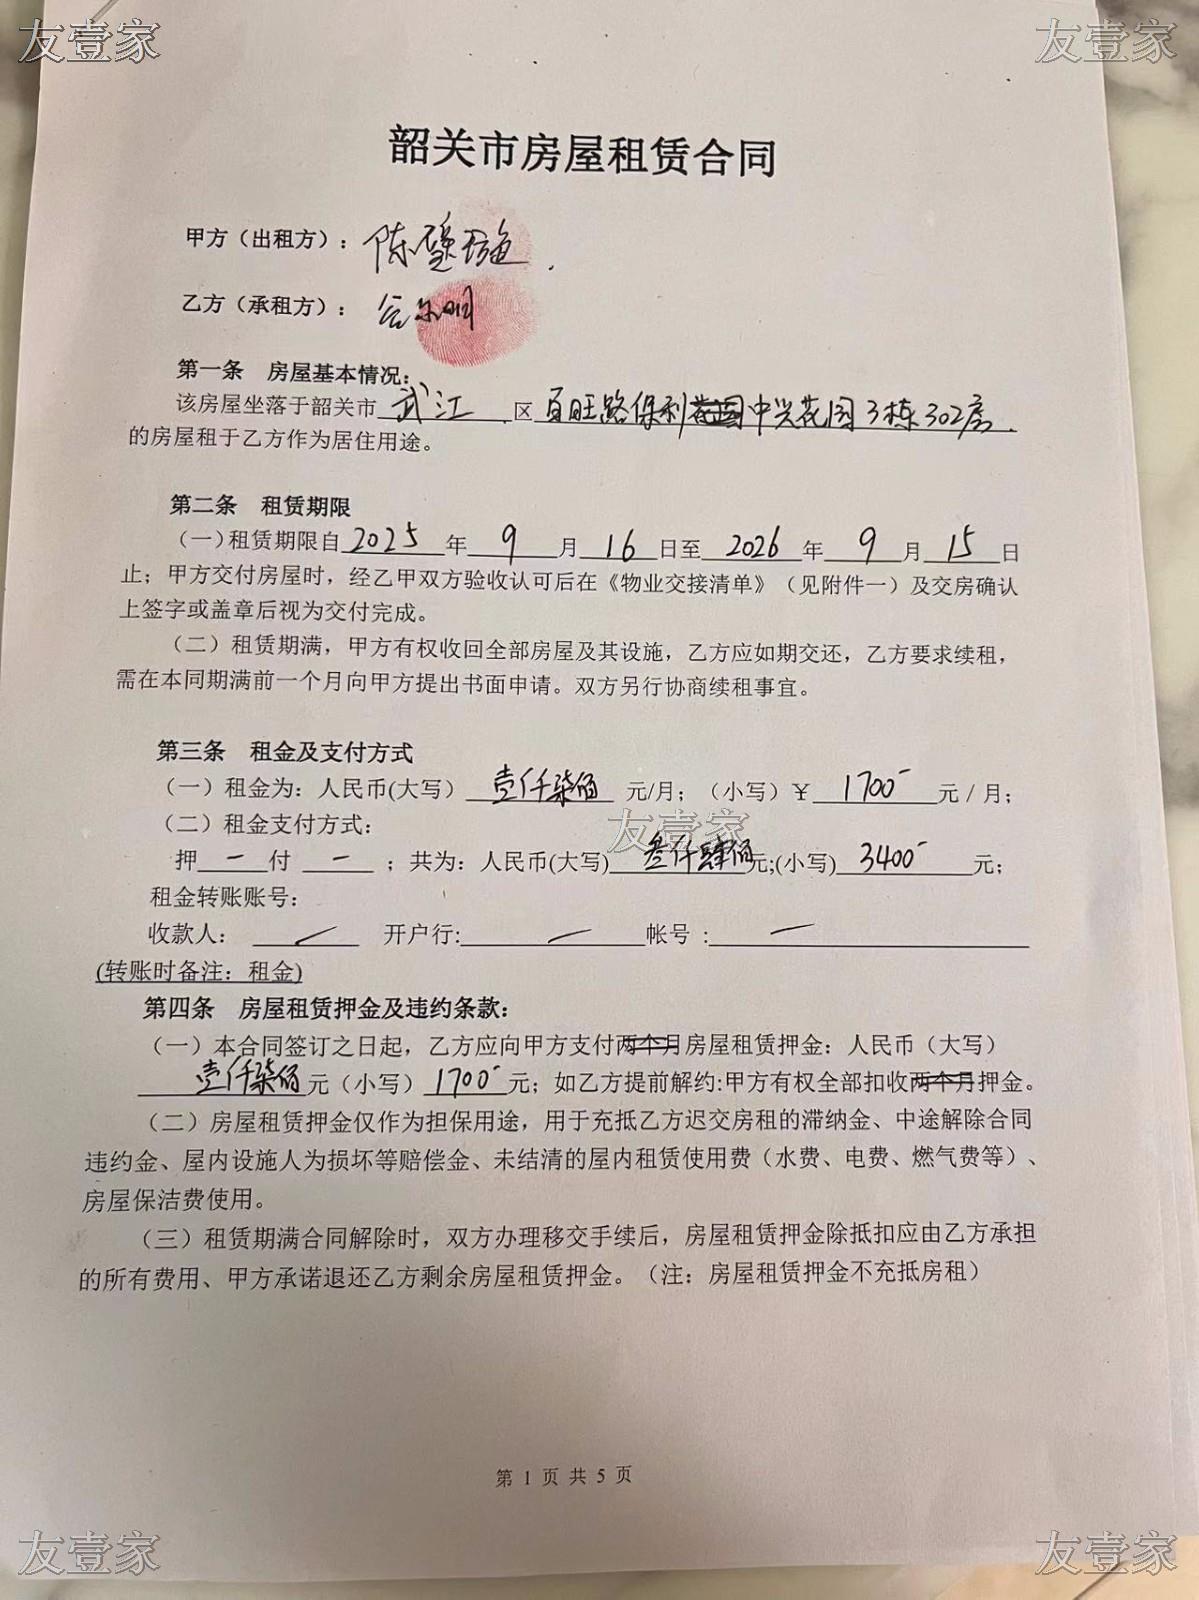 友壹家
友壹家
韶关市房屋租赁合同
甲方（出租方）：陈
乙方（承租方）：
第一条 房屋基本情况：
该房屋坐落于韶关市武江区百旺路保利花园中兴花园3栋302房
的房屋租于乙方作为居住用途。
第二条 租赁期限
（一）租赁期限自2025年9月16日至2026年9月15日
止；甲方交付房屋时，经乙甲双方验收认可后在《物业交接清单》（见附件一）及交房确认
上签字或盖章后视为交付完成。
（二）租赁期满，甲方有权收回全部房屋及其设施，乙方应如期交还，乙方要求续租，
需在本同期满前一个月向甲方提出书面申请。双方另行协商续租事宜。
第三条 租金及支付方式
（一）租金为：人民币(大写）壹仟柒佰元/月；（小写）￥1700元／月；
（二）租金支付方式：
友壹家
押一付一；共为：人民币(大写)叁仟肆佰元;(小写)3400元；
租金转账账号：
收款人： 开户行: 帐号 :
(转账时备注：租金)
第四条 房屋租赁押金及违约条款：
（一）本合同签订之日起，乙方应向甲方支付两个月房屋租赁押金：人民币（大写）
壹仟柒佰元（小写）1700元；如乙方提前解约:甲方有权全部扣收两个月押金。
（二）房屋租赁押金仅作为担保用途，用于充抵乙方迟交房租的滞纳金、中途解除合同
违约金、屋内设施人为损坏等赔偿金、未结清的屋内租赁使用费（水费、电费、燃气费等）、
房屋保洁费使用。
（三）租赁期满合同解除时，双方办理移交手续后，房屋租赁押金除抵扣应由乙方承担
的所有费用、甲方承诺退还乙方剩余房屋租赁押金。（注：房屋租赁押金不充抵房租）
第 1 页 共 5 页
友壹家
友壹家